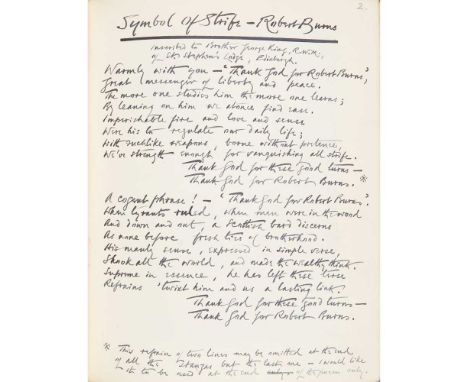 2.
Symbol of Strife – Robert Burns
inscribed to Brother George King, R.W.M.
of St. Stephen's Lodge, Edinburgh.
Warmly with you – "Thank God for Robert Burns",
Great messenger of liberty and peace.
The more one studies him the more one learns;
By leaning on him we at once find ease.
Imperishable fire and love and sense
Were his to regulate our daily life;
With suchlike weapons, borne without pretence,
We've strength enough for vanquishing all strife.
Thank God for these good turns – *
Thank God for Robert Burns.
A cogent phrase! – "Thank God for Robert Burns".
When tyrants ruled, when men were in the wood
And down and out, a Scottish bard discerns
As none before fresh ties of brotherhood.
His manly sense, expressed in simple verse,
Shook all the world, and made the wealthy think.
Supreme in essence, he has left these terse
Refrains 'twixt him and us a lasting link.
Thank God for these good turns –
Thank God for Robert Burns.
* This refrain of two lines may be omitted at the end
of all the stanzas but the last one – I would like
it to be used at the end of the poem only.